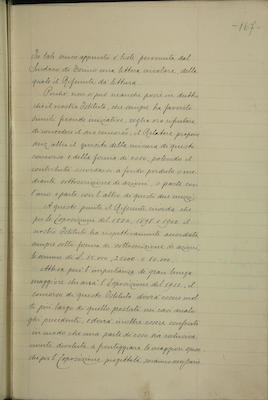 -167-
In tale senso appunto è stata pervenuta dal
Sindaco di Torino una lettera circolare, della
quale il Riferente dà lettura.
Poichè non si può neanche porre in dubbio
che il nostro Istituto, che sempre ha favorito
simili feconde iniziative, voglia ora rifiutare
di concedere il suo concorso, il Relatore propone
senz'altro il quesito della misura di questo
concorso e della forma di esso, potendo il
contributo accordarsi a fondo perduto o me-
diante sottoscrizione di azioni, o parte con
l'uno e parte con l'altro di questi due mezzi.
A questo punto il Riferente ricorda che
per le Esposizioni del 1884, 1898 e 1902 il
nostro Istituto ha rispettivamente accordato
sempre sotto forma di sottoscrizione di azioni,
le somme di L. 25.000, 20000 e 10.000.
Attesa però l'importanza di gran lunga
maggiore che avrà l'Esposizione del 1911, il
concorso di questo Istituto dovrà essere mol-
to più largo di quello prestato nei casi analo-
ghi precedenti, e dovrà inoltre essere conferito
in modo che una parte di esso sia esclusiva-
mente destinata a fronteggiare le maggiori spese
che per l'Esposizione progettata, saranno